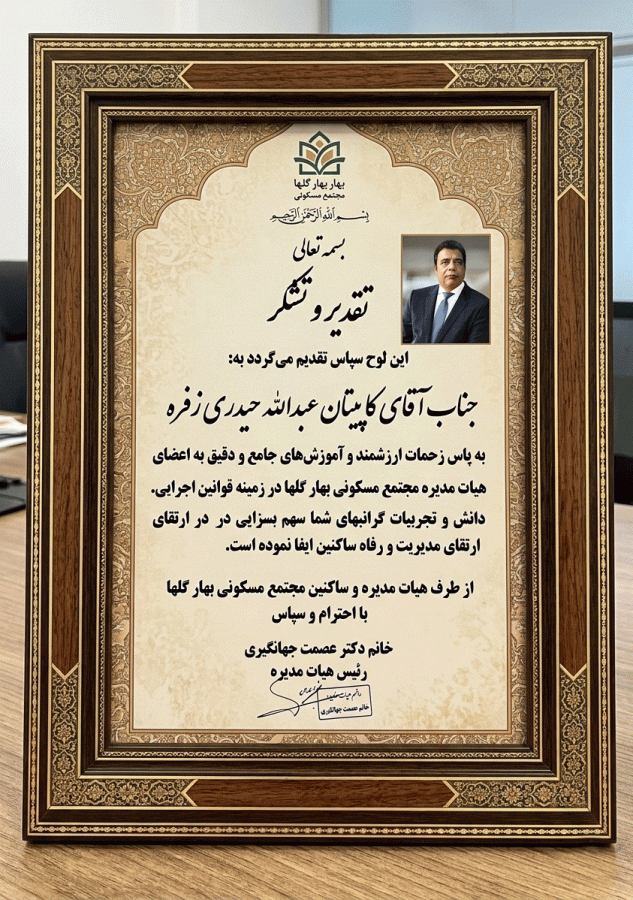 بهار بهار گلها
مجتمع مسکونی
بسم الله الرحمن الرحیم
بسمه تعالی
تقدیر و تشکر
این لوح سپاس تقدیم می‌گردد به:
جناب آقای کاپیتان عبدالله حیدری زفره
به پاس زحمات ارزشمند و آموزش‌های جامع و دقیق به اعضای
هیات مدیره مجتمع مسکونی بهار گلها در زمینه قوانین اجرایی.
دانش و تجربیات گرانبهای شما سهم بسزایی در در ارتقای
ارتقای مدیریت و رفاه ساکنین ایفا نموده است.
از طرف هیات مدیره و ساکنین مجتمع مسکونی بهار گلها
با احترام و سپاس
خانم دکتر عصمت جهانگیری
رئیس هیات مدیره
خانم عصمت جهانگیری